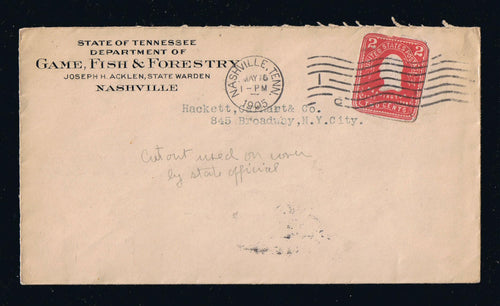 STATE OF TENNESSEE
DEPARTMENT OF
GAME, FISH & FORESTRY
JOSEPH H. ACKLEN, STATE WARDEN
NASHVILLE
NASHVILLE, TENN.
MAY 16
1-PM
1905
2 UNITED STATES POSTAGE 2
TWO CENTS
Hackett, & Co.
845 Broadway, N.Y. City.
Cut out used on cover
by state official